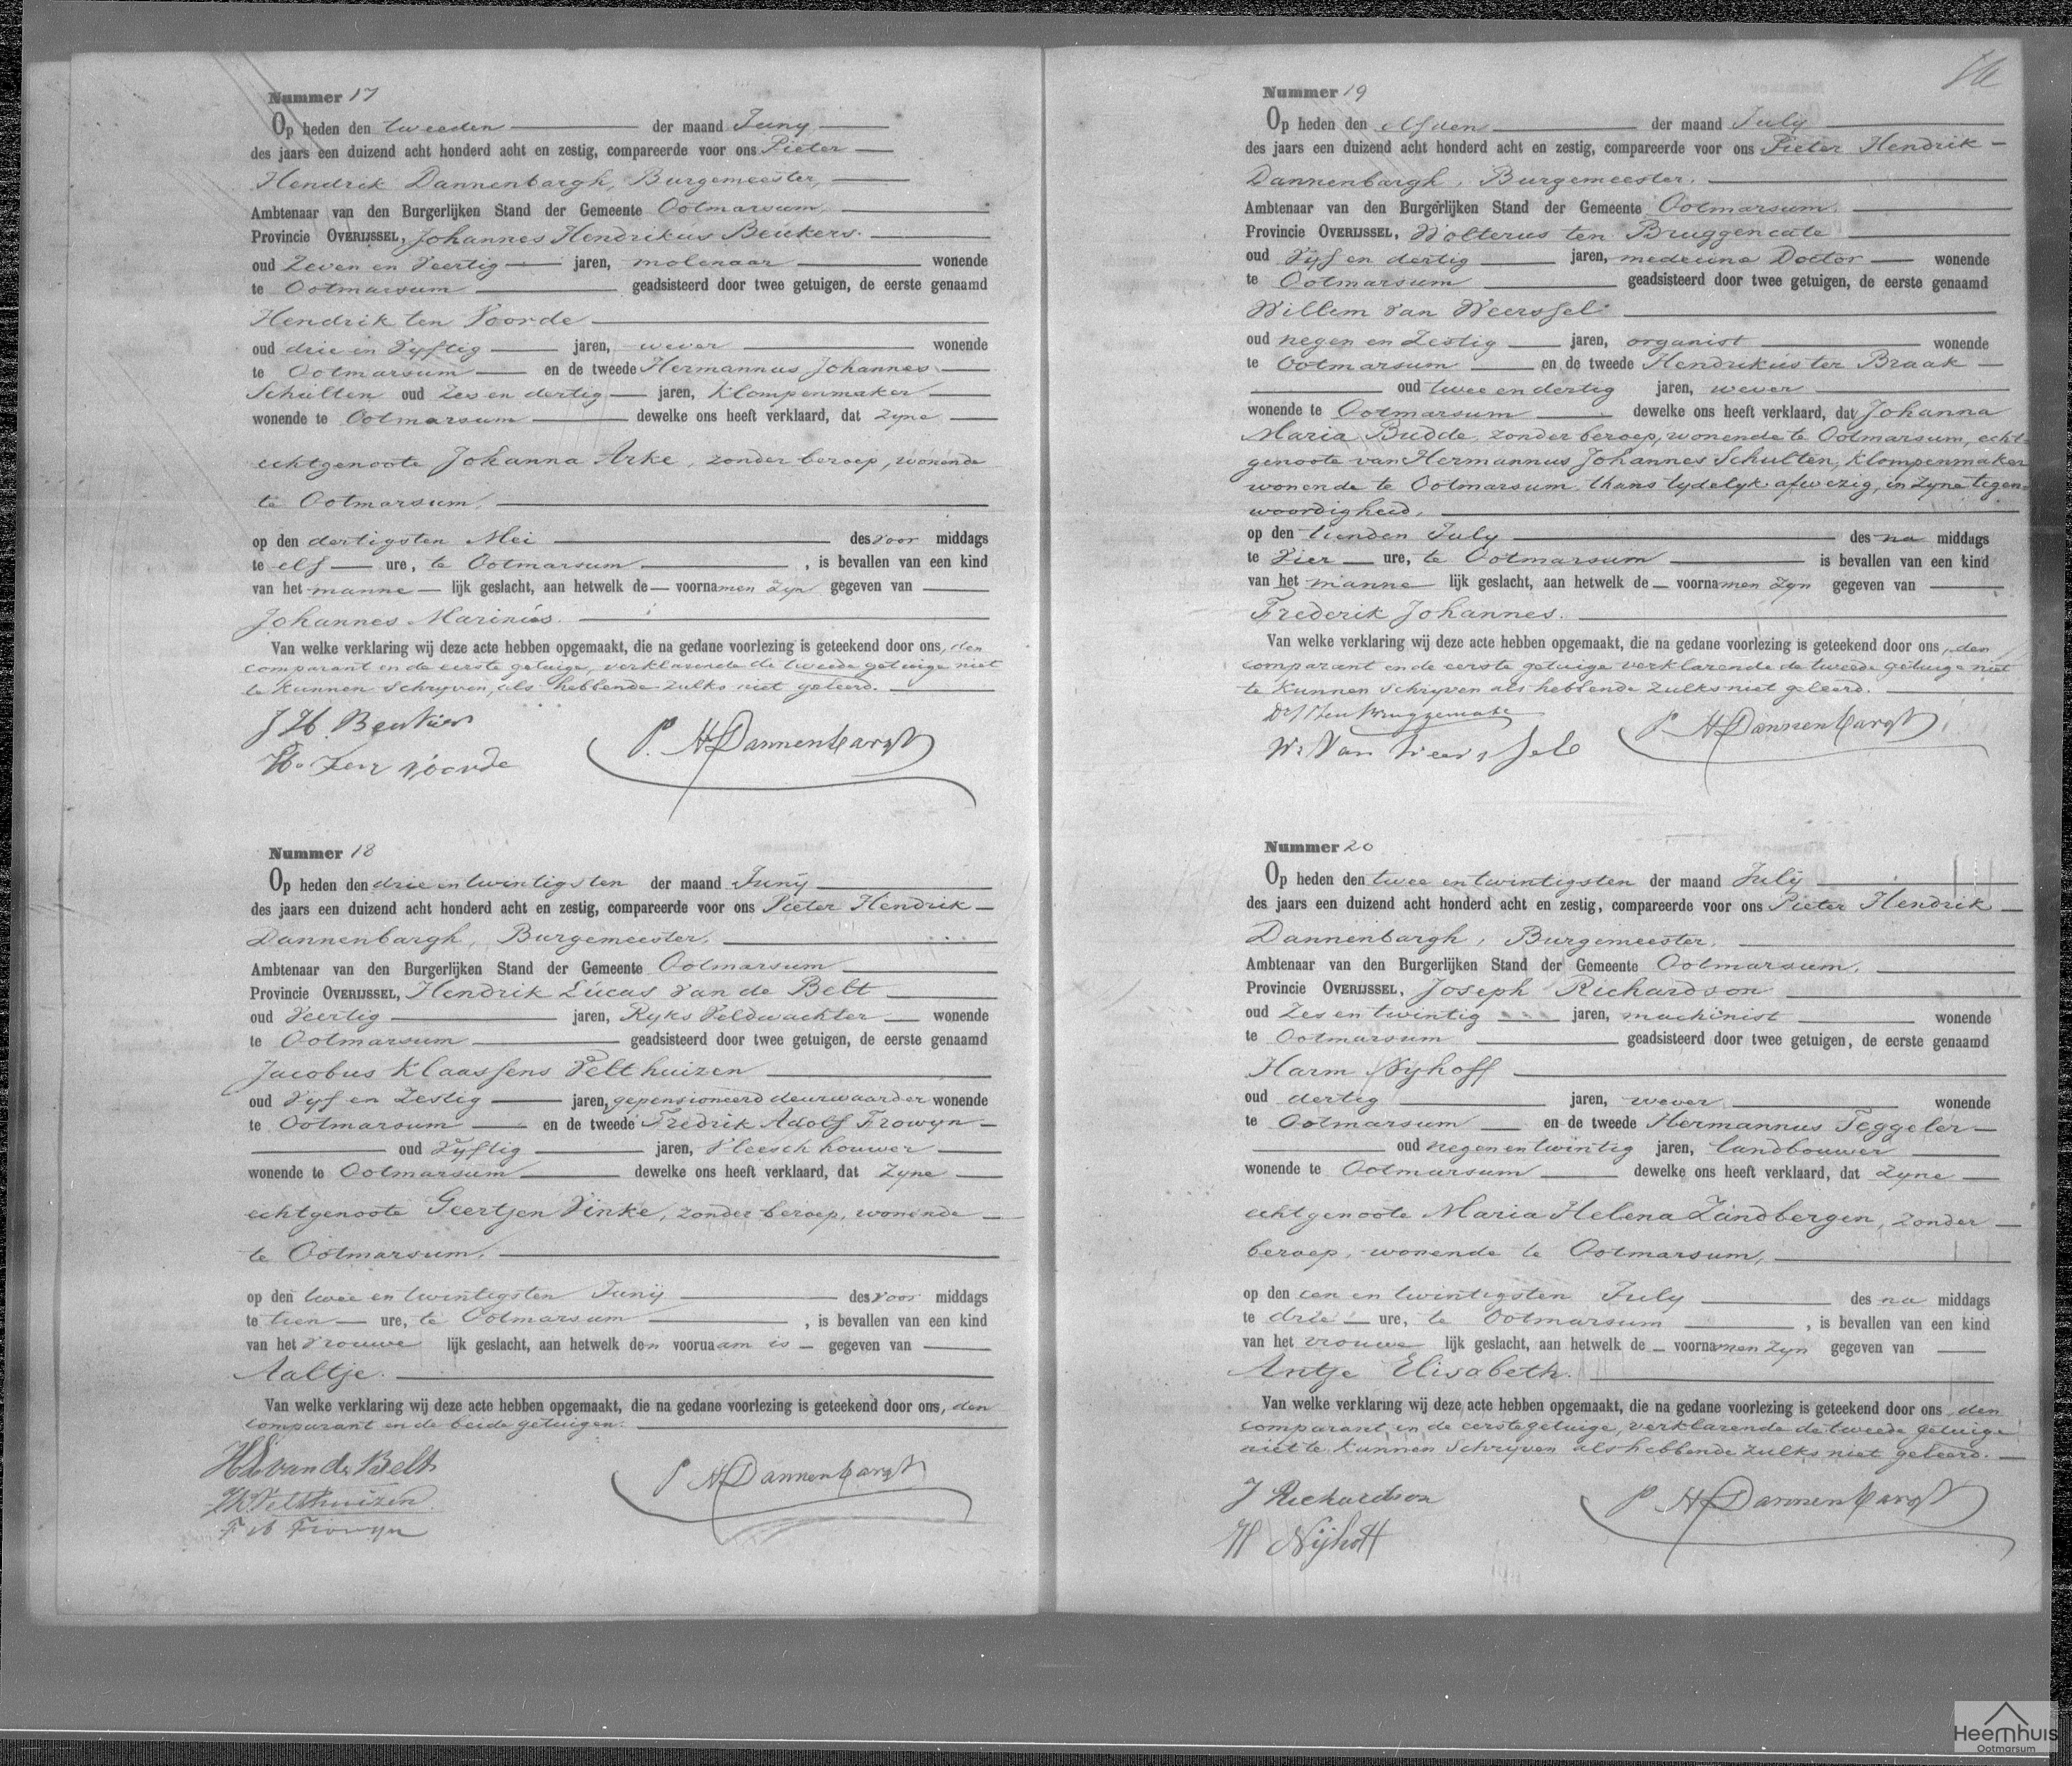 Nummer 17
Op heden den tweeden der maand Juny
des jaars een duizend acht honderd acht en zestig, compareerde voor ons Pieter
Hendrik Dannenbargh, Burgemeester,
Ambtenaar van den Burgerlijken Stand der Gemeente Ootmarsum,
Provincie OVERIJSSEL, Johannes Hendrikus Beukers.
oud Zeven en Veertig jaren, molenaar wonende
te Ootmarsum geadsisteerd door twee getuigen, de eerste genaamd
Hendrik ten Voorde
oud drie en Vyftig jaren, wever wonende
te Ootmarsum en de tweede Hermannus Johannes
Schulten oud Zes en dertig jaren, Klompenmaker
wonende te Ootmarsum dewelke ons heeft verklaard, dat zyne
echtgenoote Johanna Arke, zonder beroep, wonende
te Ootmarsum,
op den dertigsten Mei des voor middags
te elf ure, te Ootmarsum, is bevallen van een kind
van het manne lijk geslacht, aan hetwelk de voornamen zyn gegeven van
Johannes Marinus.
Van welke verklaring wij deze acte hebben opgemaakt, die na gedane voorlezing is geteekend door ons, den
comparant en de eerste getuige, verklarende de tweede getuige niet
te Kunnen Schryven, als hebbende zulks niet geleerd.
J H. Beukers
H. Ten Voorde P. H Dannenbargh
Nummer 18
Op heden den drie en twintigsten der maand Juny
des jaars een duizend acht honderd acht en zestig, compareerde voor ons Pieter Hendrik
Dannenbargh, Burgemeester,
Ambtenaar van den Burgerlijken Stand der Gemeente Ootmarsum
Provincie OVERIJSSEL, Hendrik Lucas van de Belt
oud Veertig jaren, Ryks Veldwachter wonende
te Ootmarsum geadsisteerd door twee getuigen, de eerste genaamd
Jacobus Klaassens Velthuizen
oud Vyf en Zestig jaren, gepensioneerd deurwaarder wonende
te Ootmarsum en de tweede Fredrik Adolf Frowyn
oud Vyftig jaren, Vleeschhouwer
wonende te Ootmarsum dewelke ons heeft verklaard, dat zyne
echtgenoote Geertjen Vinke, zonder beroep, wonende
te Ootmarsum,
op den twee en twintigsten Juny des voor middags
te tien ure, te Ootmarsum, is bevallen van een kind
van het Vrouwe lijk geslacht, aan hetwelk den voornaam is gegeven van
Aaltje.
Van welke verklaring wij deze acte hebben opgemaakt, die na gedane voorlezing is geteekend door ons, den
comparant en de beide getuigen.
H L van de Belt
JK Velthuizen P H Dannenbargh
F A Frowyn
Nummer 19
Op heden den elfden der maand July
des jaars een duizend acht honderd acht en zestig, compareerde voor ons Pieter Hendrik
Dannenbargh, Burgemeester,
Ambtenaar van den Burgerlijken Stand der Gemeente Ootmarsum.
Provincie OVERIJSSEL, Wolterus ten Bruggencate
oud Vyf en dertig jaren, medicina Doctor wonende
te Ootmarsum geadsisteerd door twee getuigen, de eerste genaamd
Willem van Weerssel
oud negen en Zestig jaren, organist wonende
te Ootmarsum en de tweede Hendrikus ter Braak
oud twee en dertig jaren, wever
wonende te Ootmarsum dewelke ons heeft verklaard, dat Johanna
Maria Budde, zonder beroep, wonende te Ootmarsum, echt=
genoote van Hermannus Johannes Schulten, Klompenmaker
wonende te Ootmarsum, thans tydelyk afwezig, in zyne tegen=
woordigheid,
op den tienden July des na middags
te Vier ure, te Ootmarsum is bevallen van een kind
van het manne lijk geslacht, aan hetwelk de voornamen zyn gegeven van
Frederik Johannes.
Van welke verklaring wij deze acte hebben opgemaakt, die na gedane voorlezing is geteekend door ons, den
comparant en de eerste getuige verklarende de tweede getuige niet
te Kunnen Schryven als hebbende zulks niet geleerd.
ten Bruggencate
W: Van Weerssel P H Dannenbargh
Nummer 20
Op heden den twee en twintigsten der maand July
des jaars een duizend acht honderd acht en zestig, compareerde voor ons Pieter Hendrik
Dannenbargh, Burgemeester,
Ambtenaar van den Burgerlijken Stand der Gemeente Ootmarsum,
Provincie OVERIJSSEL, Joseph Richardson
oud Zes en twintig jaren, machinist wonende
te Ootmarsum geadsisteerd door twee getuigen, de eerste genaamd
Harm Nyhoff
oud dertig jaren, wever wonende
te Ootmarsum en de tweede Hermannus Teggeler
oud negen en twintig jaren, landbouwer
wonende te Ootmarsum dewelke ons heeft verklaard, dat zyne
echtgenoote Maria Helena Zandbergen, zonder
beroep, wonende te Ootmarsum,
op den een en twintigsten July des na middags
te drie ure, te Ootmarsum, is bevallen van een kind
van het vrouwe lijk geslacht, aan hetwelk de voornamen zyn gegeven van
Antje Elisabeth.
Van welke verklaring wij deze acte hebben opgemaakt, die na gedane voorlezing is geteekend door ons, den
comparant en de eerste getuige, verklarende de tweede getuige
niet te Kunnen Schryven als hebbende zulks niet geleerd.
J Richardson
H Nijhoff P H Dannenbargh
Heemhuis
Ootmarsum